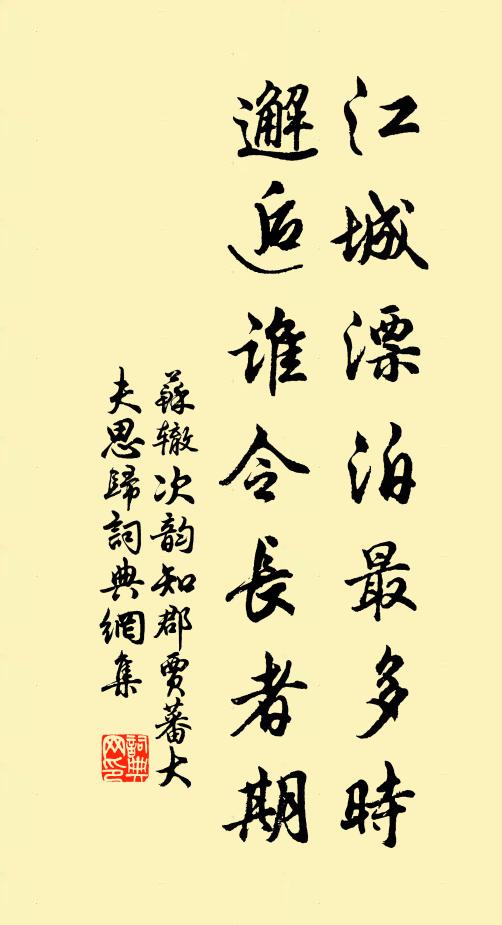 江城漂泊最多時
邂逅誰令長者期
蘇辙次韵知郡賈蕃大
夫思歸詞典網集
詞典網印